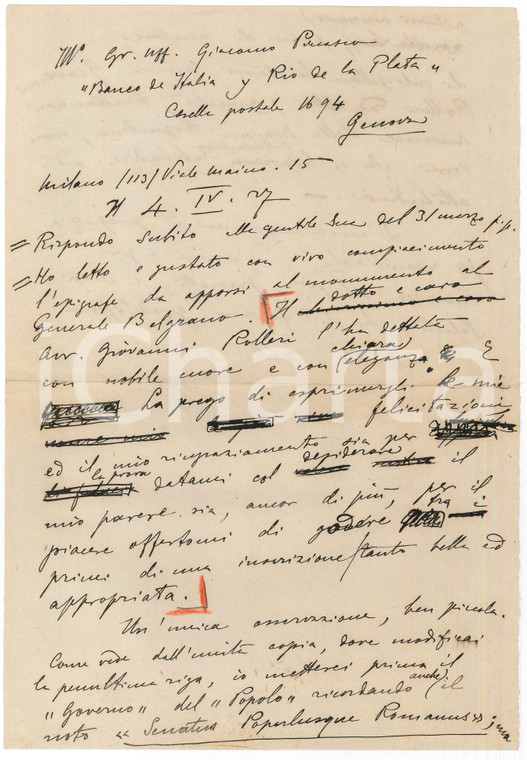 Gr. Uff. Giacomo
"Banco de Italia y Rio de la Plata"
Casella postale 1694
Genova
Milano (113) Viale Maino. 15
Il 4. IV. 27
= Rispondo subito alla gentile Sua del 31 marzo p.p.
= Ho letto e gustato con vivo compiacimento
l'epigrafe da apporsi al monumento al
Generale Belgrano. Il dotto e caro
Avv. Giovanni Rolleri l'ha dettata
con nobile cuore e con chiara eleganza. E
La prego di esprimergli le mie
felicitazioni
ed il mio ringraziamento sia per
la prova datami col desiderare il
mio parere sia, ancor di più, per il
piacere offertomi di godere fra i
primi di una inscrizione tanto bella ed
appropriata.
Un'unica osservazione, ben piccola.
Come vede dall'unita copia, dove modificai
la penultima riga, io metterei prima il
"Governo" del "Popolo" ricordando (anche) il
noto "Senatus Populusque Romanus"; ma
Charta